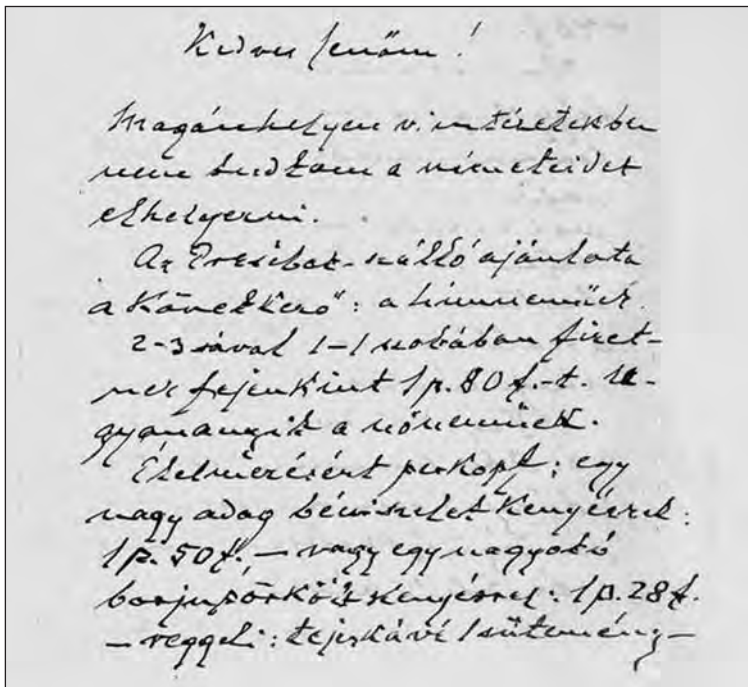 Kedves Jenőm!
Magánhelyen v. intézetekben
nem tudtam a németeidet
elhelyezni.
Az szálló ajánlata
a következő": a hímneműek
2-3-sával 1-1 szobában fizet-
nek fejenkint 1 p. 80 f.-t. U-
gyanannyit a nőneműek.
Élelmezésért perkopf: egy
nagy adag bécsiszelet kenyérrel:
1 p. 50 f. – vagy egy nagyobb
borjupörkölt kenyérrel: 1 p. 28 f.
– reggeli: tejeskávé 1 sütemény –